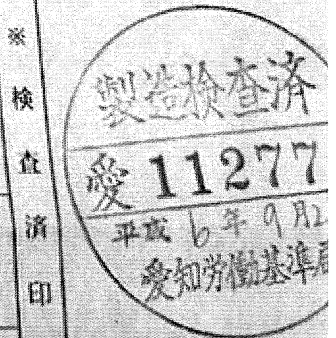 ※検査済印
製造検査済
愛 11277
平成 6年 9月2
愛知労働基準局